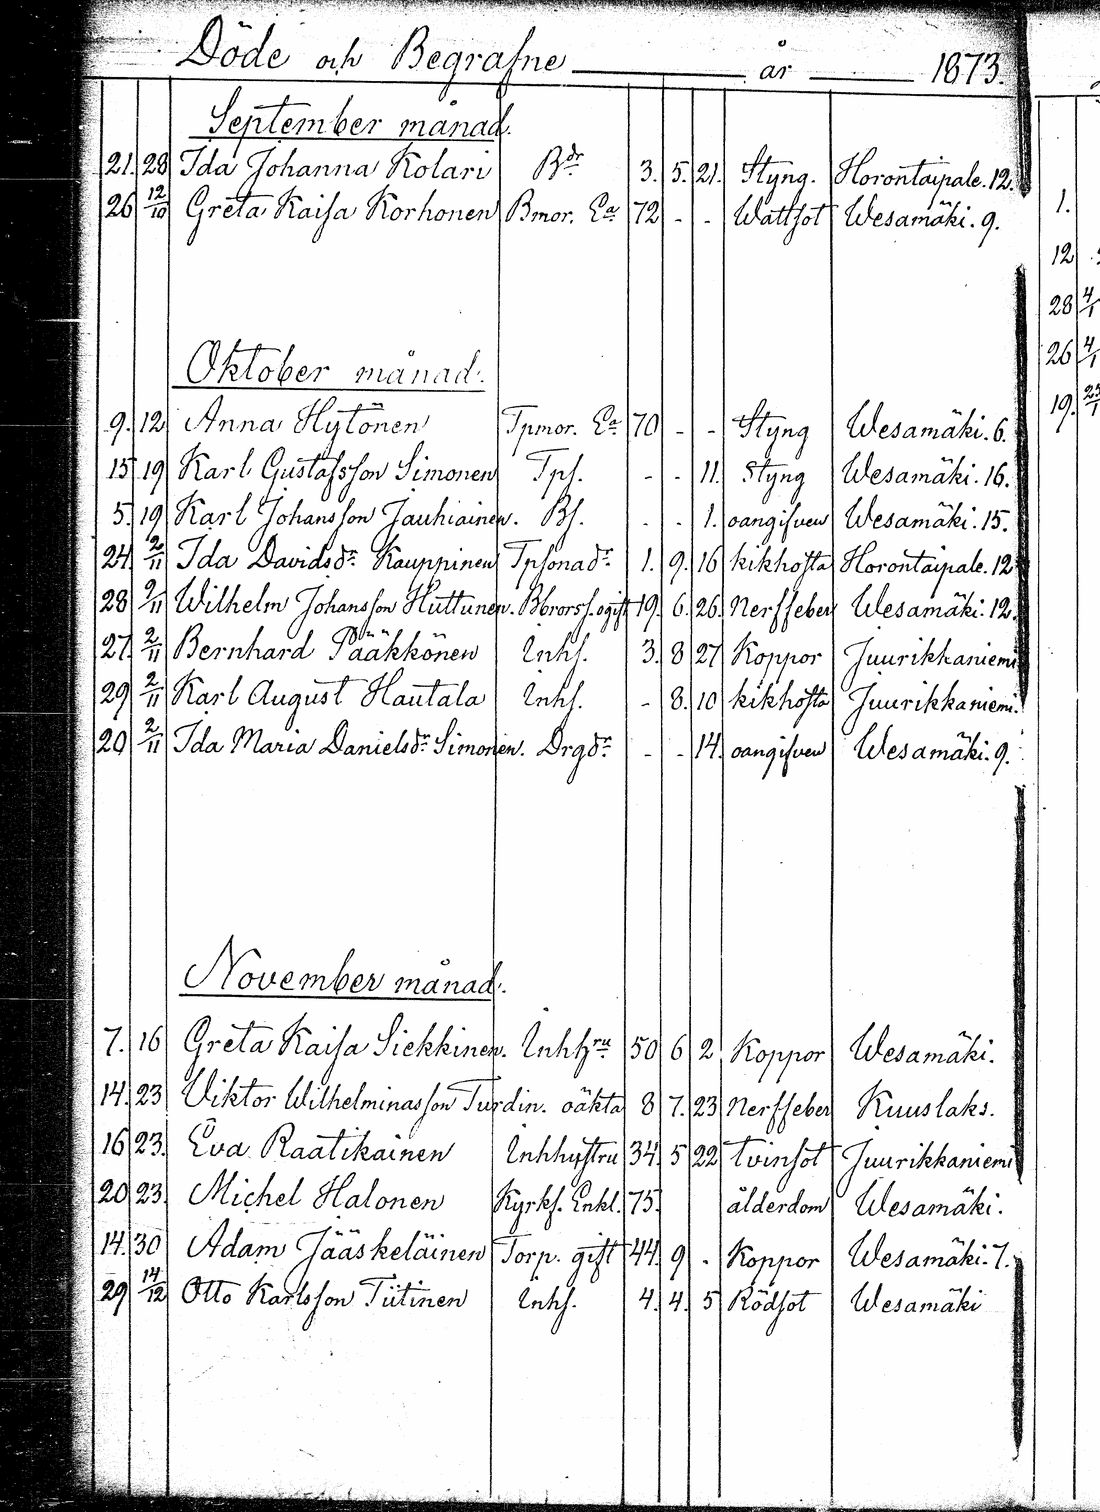 Döde och Begrafne år 1873.
September månad.
21. 28 Ida Johanna Kolari Bdr 3. 5. 21. Styng. Horontaipale. 12.
26 12/10 Greta Kaisa Korhonen Bmor. Ea 72 - - Wattsot Wesamäki. 9.
Oktober månad.
9. 12 Anna Hytönen Tpmor. Ea 70 - - Styng Wesamäki. 6.
15 19 Karl Gustafsson Simonen Tps. - - 11. Styng Wesamäki. 16.
5. 19 Karl Johansson Jauhiainen. Bs. - - 1. oangifven Wesamäki. 15.
24. 2/11 Ida Davidsdr Kauppinen Tpsonadr 1. 9. 16 kikhosta Horontaipale. 12
28 2/11 Wilhelm Johansson Huttunen. Bbrors. ogift 19. 6. 26. Nerffeber Wesamäki. 12.
27. 2/11 Bernhard Pääkkönen Inhs. 3. 8 27 Koppor Juurikkaniemi
29 2/11 Karl August Hautala Inhs. - 8. 10 kikhosta Juurikkaniemi.
20 2/11 Ida Maria Danielsdr Simonen. Drgdr - - 14. oangifven Wesamäki. 9.
November månad.
7. 16 Greta Kaisa Siekkinen. Inhhru 50 6 2 Koppor Wesamäki.
14. 23 Viktor Wilhelminasson Turdin. oäkta 8 7. 23 Nerffeber Kuuslaks.
16 23. Eva Raatikainen Inhhustru 34. 5 22 tvinsot Juurikkaniemi
20 23. Michel Halonen Kyrks. Enkl. 75. älderdom Wesamäki.
14. 30 Adam Jääskeläinen Torp. gift 44. 9 - Koppor Wesamäki. 7.
29 14/12 Otto Karlsson Tiitinen Inhs. 4. 4. 5 Rödsot Wesamäki
1.
12
28 4/1
26 4/1
19.